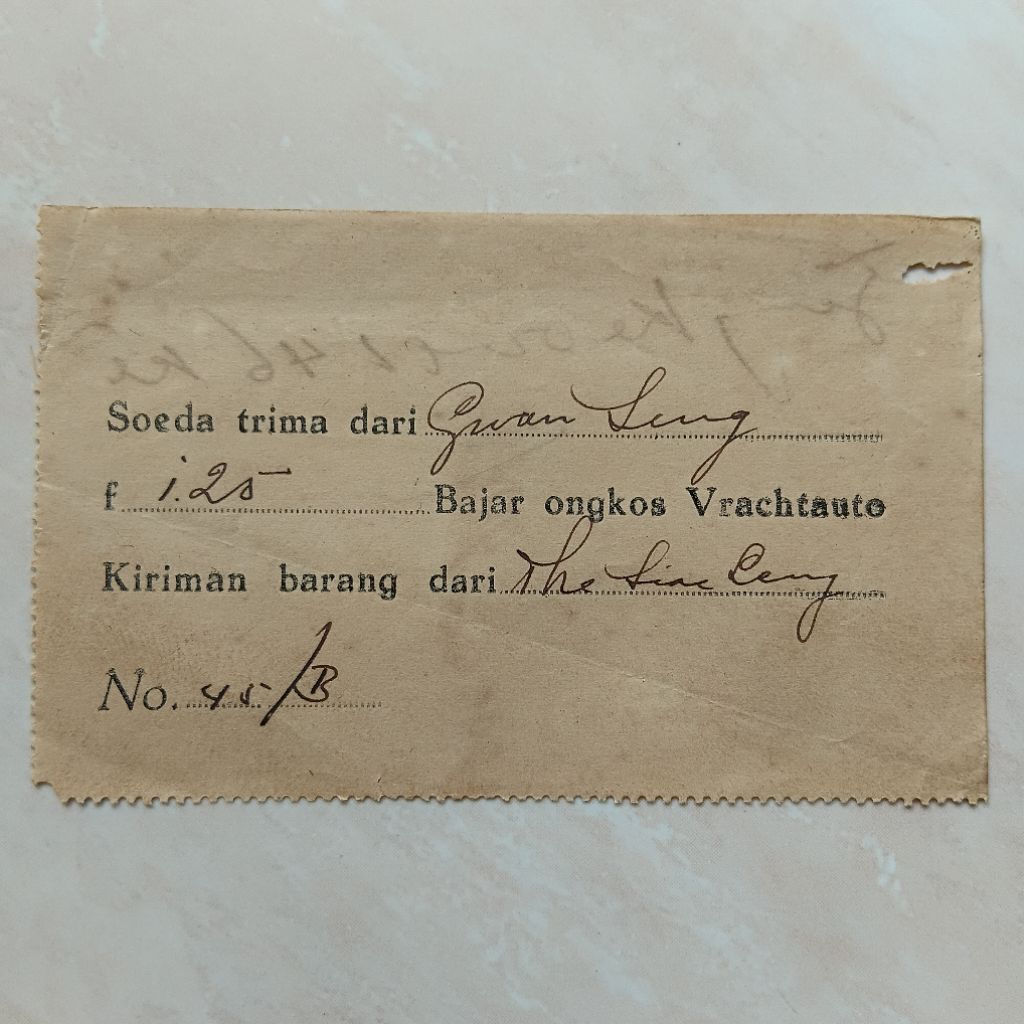 Soeda trima dari Gwan Seng
f 1.25 Bajar ongkos Vrachtauto
Kiriman barang dari The Sian Ceng
No. 45/B